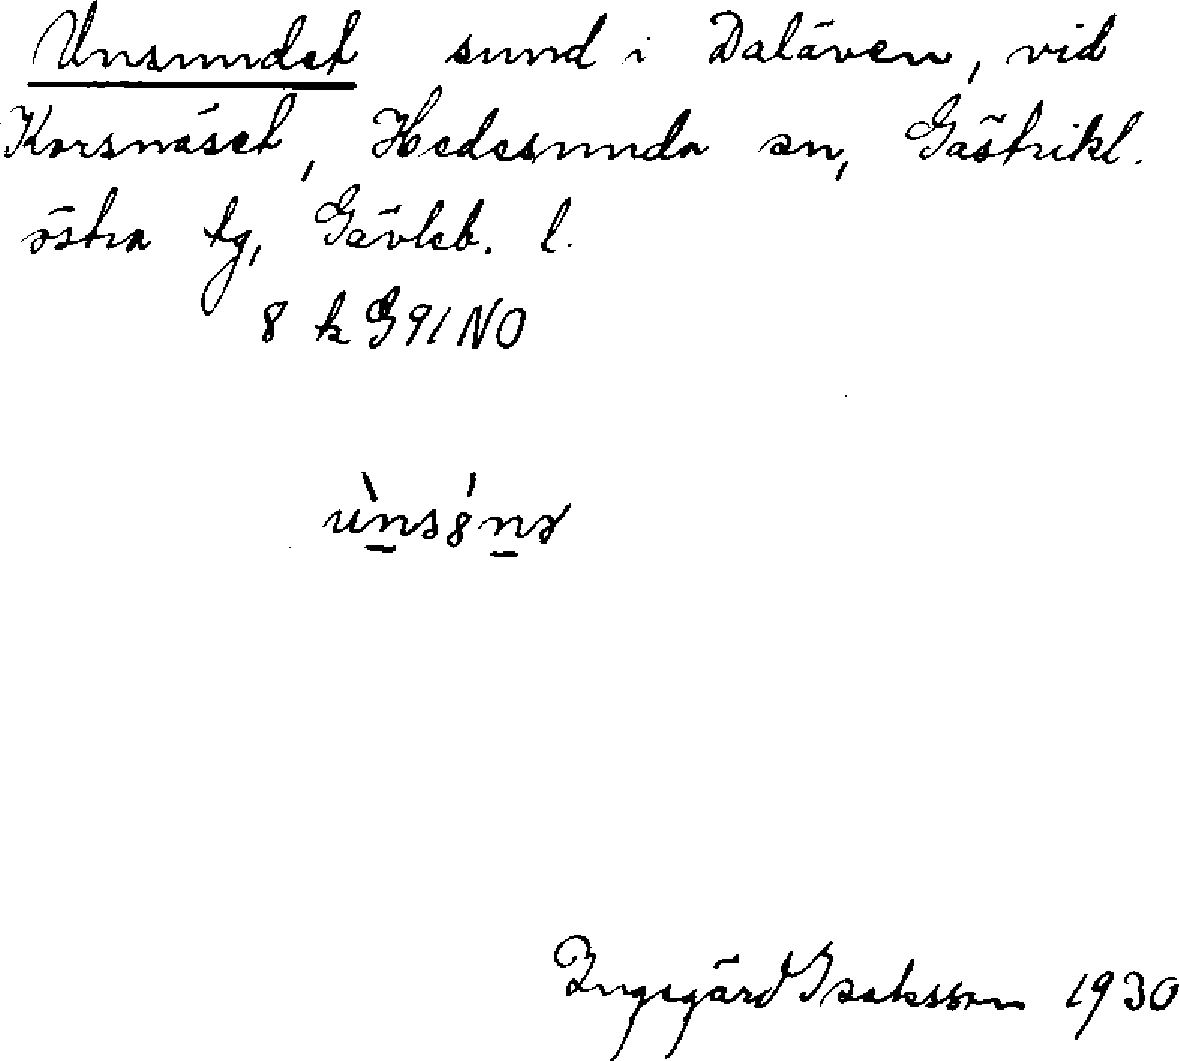 Unsundet sund i Daläven, vid
Korsnäset, Hedesunda sn, Gästrikl.
östra tg, Gävleb. l.
8 k G91NO
ùns8́nə
Ingegärd Isaksson 1930